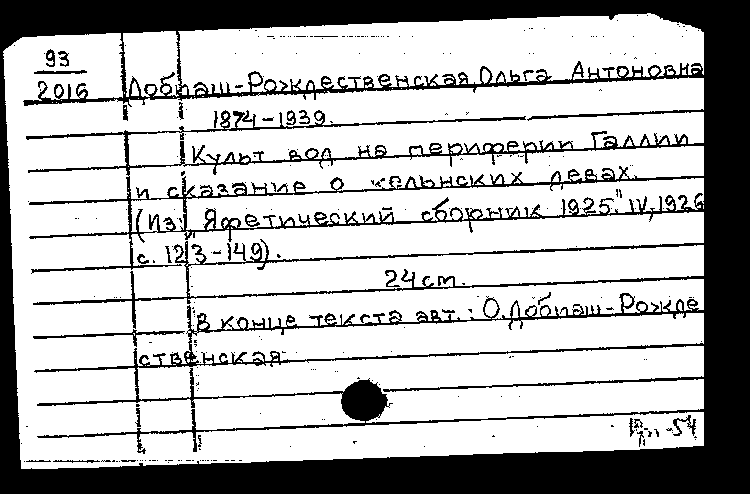 93
2016
Добиаш-Рождественская, Ольга Антоновна
1874-1939.
Культ вод на периферии Галлии
и сказание о кельнских девах.
(Из: „Яфетический сборник 1925." IV, 1926
с. 123-149).
24 cm.
В конце текста авт.: О. Добиаш-Рожде
ственская
-54